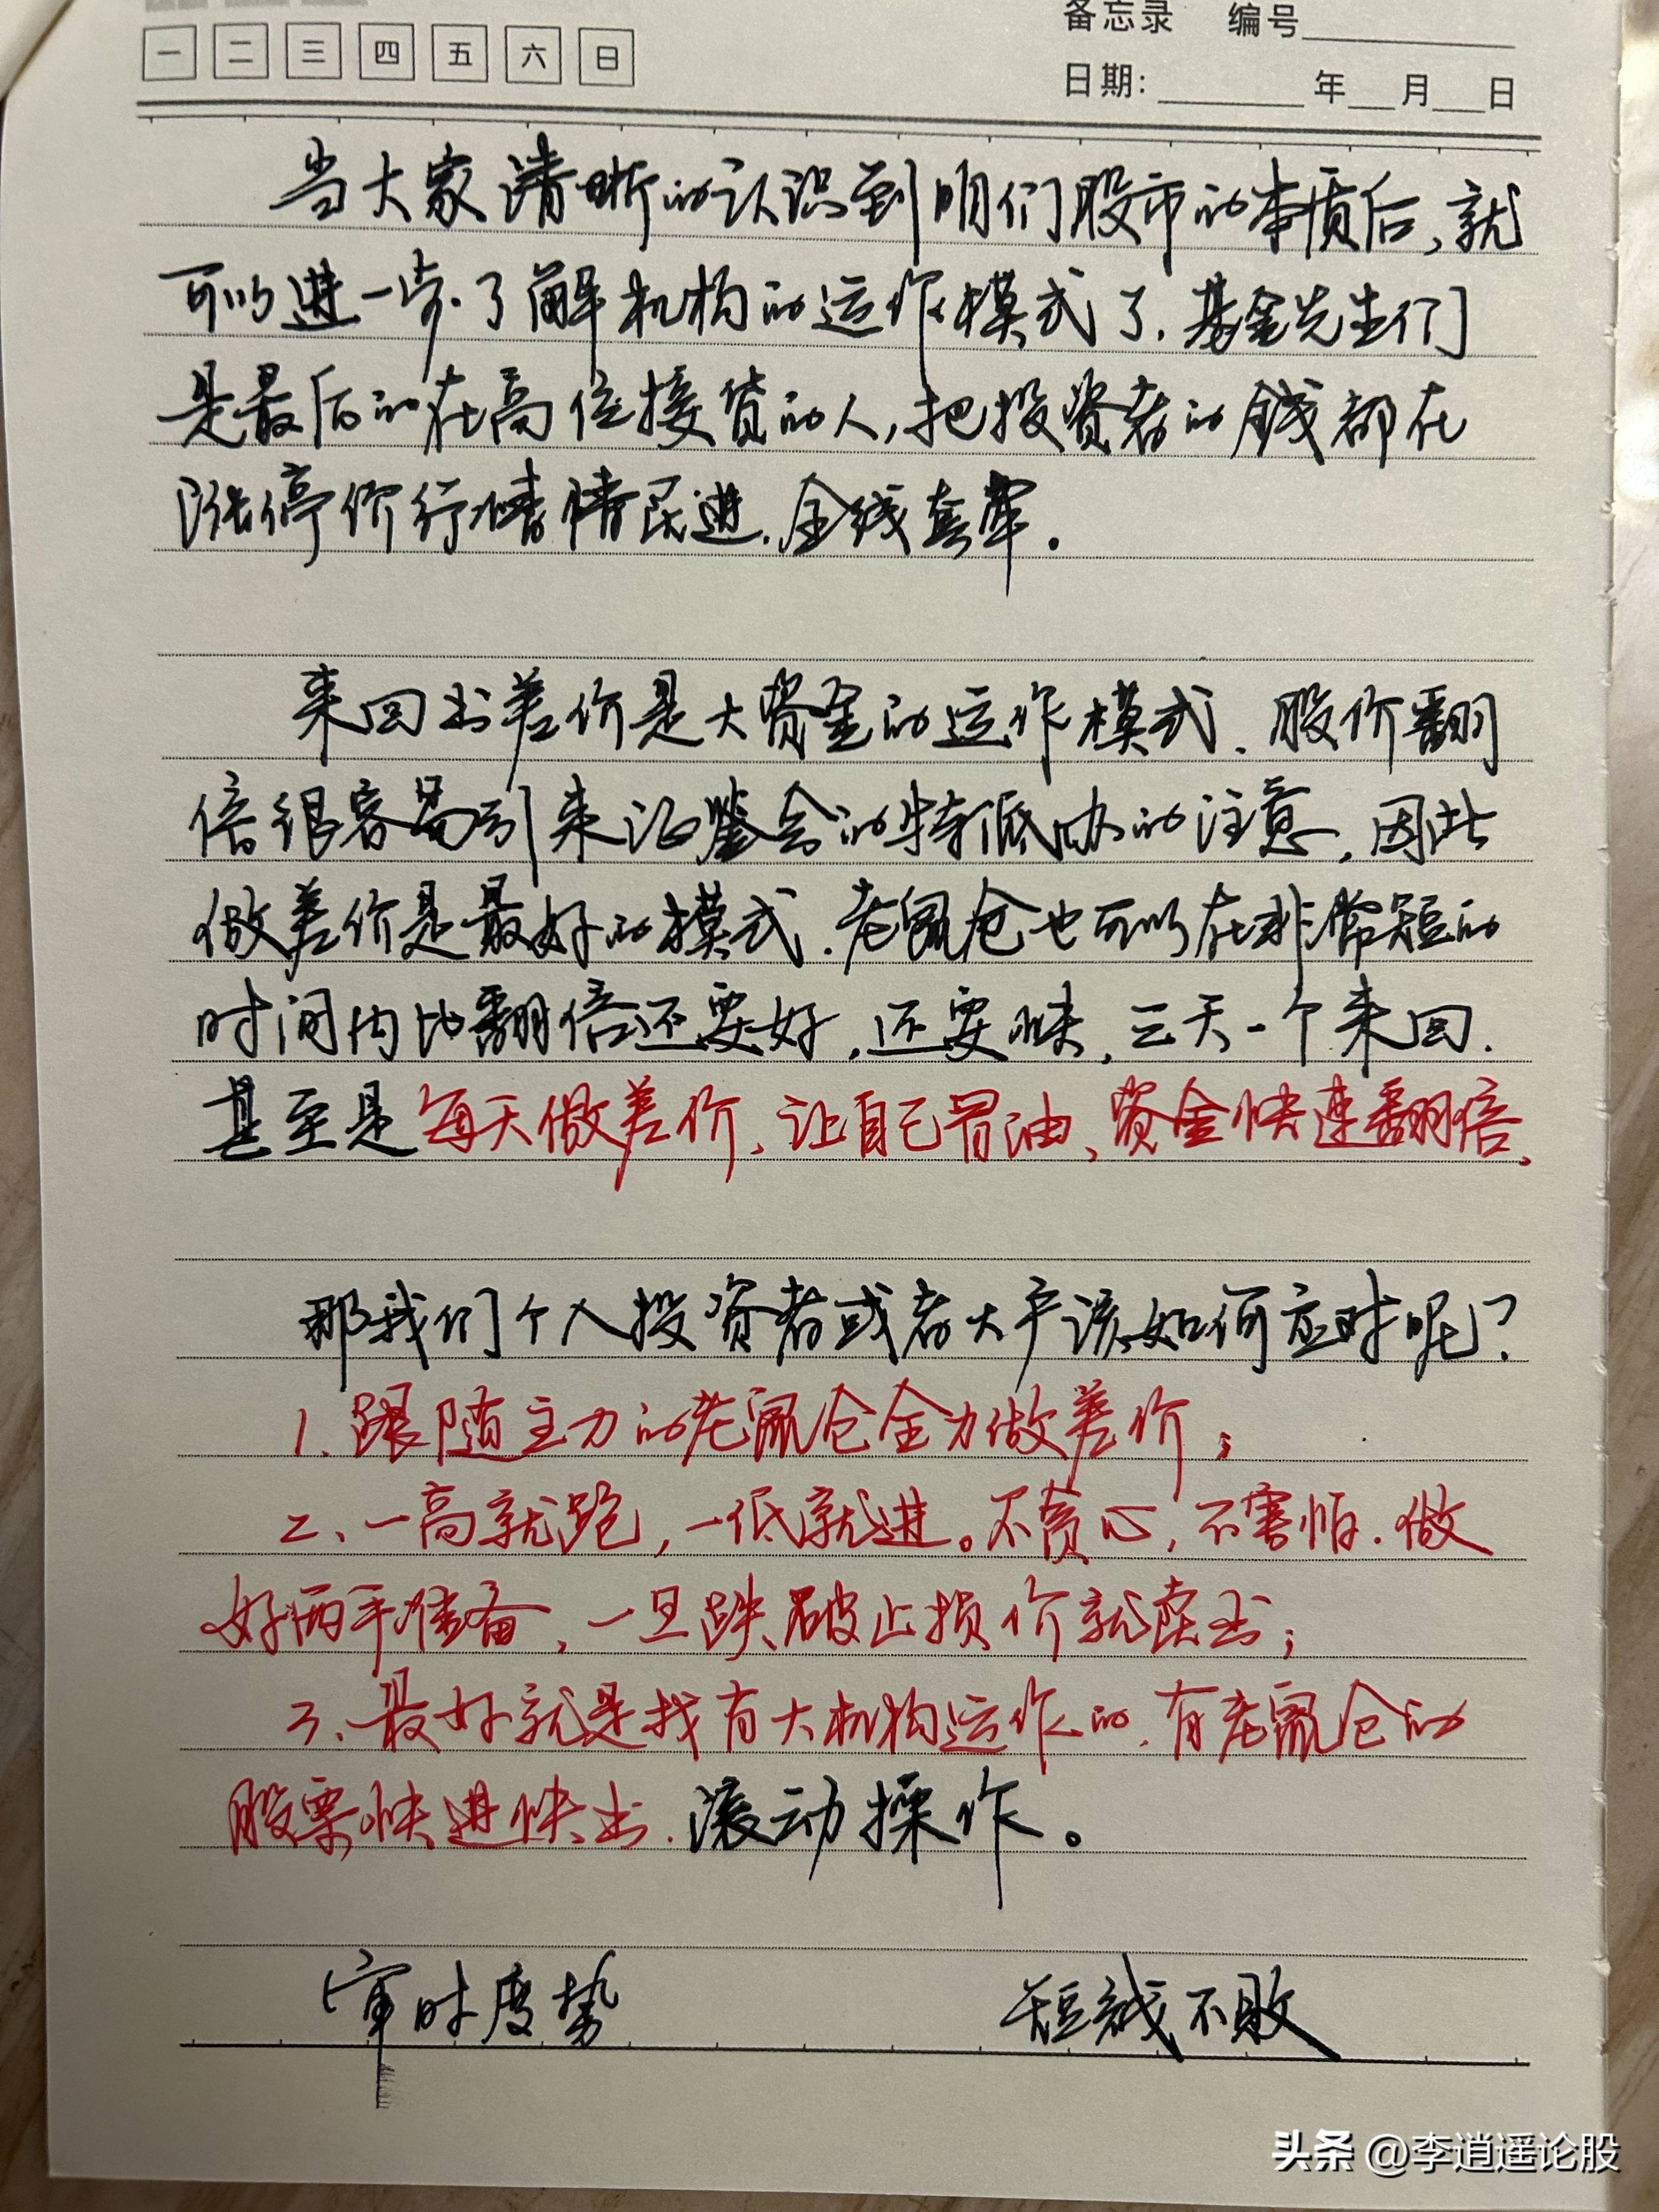 备忘录 编号
一 二 三 四 五 六 日
日期: 年 月 日
当大家清晰的认识到咱们股市的本质后,就
可以进一步了解机构的运作模式了.基金先生们
是最后的在高位接货的人,把投资者的钱都在
涨停价行情买进.全线套牢。
来回出差价是大资金的运作模式.股价翻
倍很容易引来证监会的特低办的注意,因此
做差价是最好的模式.老鼠仓也可以在非常短的
时间内比翻倍还要好,还要快,三天一个来回.
甚至是每天做差价、让自己冒油、资金快速翻倍.
那我们个人投资者或者大户该如何应对呢?
1.跟随主力的老鼠仓全力做差价;
2、一高就跑,一低就进。不贪心,不害怕.做
好两手准备,一旦跌破止损价就卖出;
3、最好就是找有大机构运作的.有老鼠仓的
股票,快进快出.滚动操作。
审时度势 短线不败
头条 @李逍遥论股